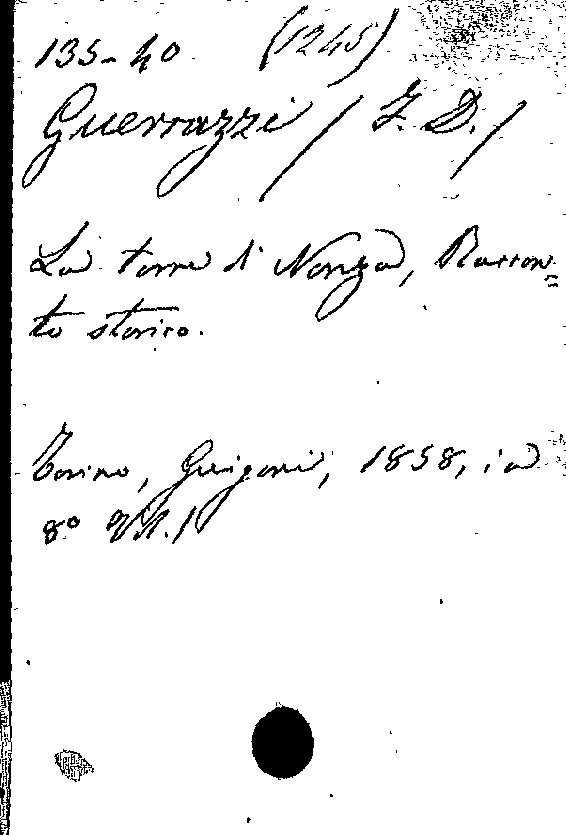 135-40 (1245)
Guerrazzi / F. D. /
La torre di Nonza, Raccon=
to storico.
Torino, Guigoni, 1858, in
8° Vol. 1